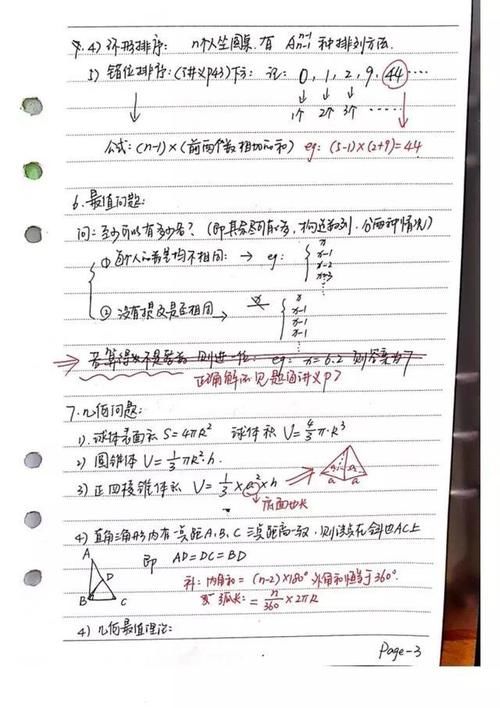 4) 环形排序: n个人坐圆桌,有 A_{n-1}^{n-1} 种排列方法.
5) 错位排序:(讲义P43)下方: 记: 0, 1, 2, 9, 44 ……
1个 2个 3个 ……
公式: (n-1)×(前两个数相加的和) eg: (5-1)×(2+9)=44
6. 最值问题:
问: 至少可以有多少名? (即其余尽可能多, 构造数列, 分两种情况)
① 每个人的数量均不相同: → eg:
x
x-1
x-2
x-3
② 没有提及是否相同 →
x
x-1
x-1
x-1
若算得数不是整数 则进一位 eg: x=6.2 则答案为7
正确解法见题海讲义P7
7. 几何问题:
1). 球体表面积 S=4πR² 球体积 V=4/3π·R³
2) 圆锥体 V=1/3πR²·h.
3) 正四棱锥体积 V=1/3×a²×h
a a a a
底面边长
4) 直角三角形内有一点距A、B、C三点距离一致, 则该点在斜边AC上
即 AD=DC=BD
A D B C
补: 内角和=(n-2)×180° 外角和恒等于360°.
弧长:=n/360×2πR
4) 几何最值理论:
Page-3